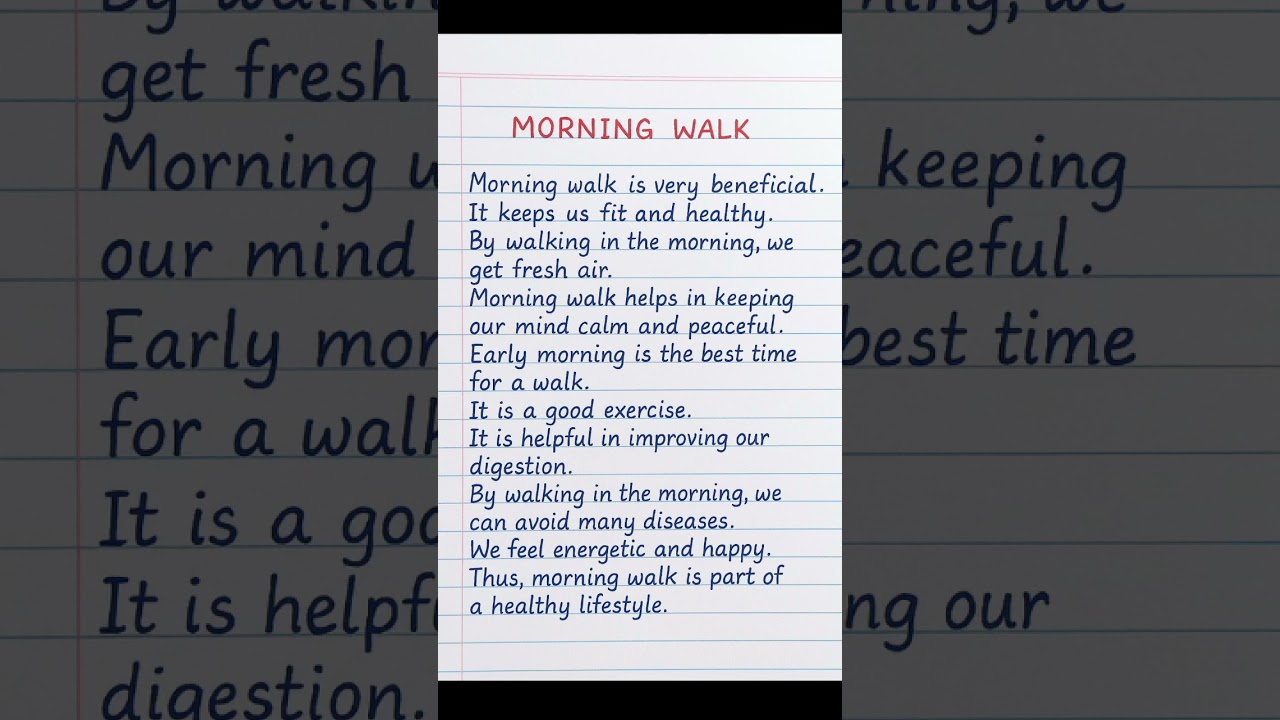 MORNING WALK
Morning walk is very beneficial.
It keeps us fit and healthy.
By walking in the morning, we
get fresh air.
Morning walk helps in keeping
our mind calm and peaceful.
Early morning is the best time
for a walk.
It is a good exercise.
It is helpful in improving our
digestion.
By walking in the morning, we
can avoid many diseases.
We feel energetic and happy.
Thus, morning walk is part of
a healthy lifestyle.